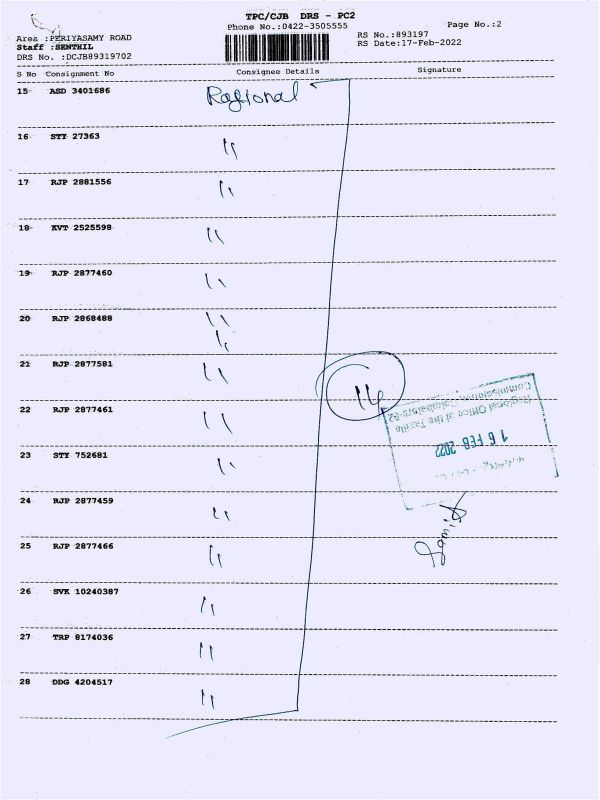 TPC/CJB DRS - PC2
Phone No.:0422-3505555
Page No.:2
Area :PERIYASAMY ROAD
Staff :SENTHIL
DRS No. :DCJB89319702
RS No.:893197
RS Date:17-Feb-2022
S No Consignment No Consignee Details Signature
15 ASD 3401686 Regional
16 STY 27363 "
17 RJP 2881556 "
18 KVT 2525598 "
19 RJP 2877460 "
20 RJP 2868488 "
"
21 RJP 2877581 "
14
22 RJP 2877461 "
Regional Office of the Textile
Commissioner, Coimbatore-
16 FEB 2022
23 STY 752681 "
24 RJP 2877459 "
25 RJP 2877466 "
26 SVK 10240387 "
27 TRP 8174036 "
28 DDG 4204517 "